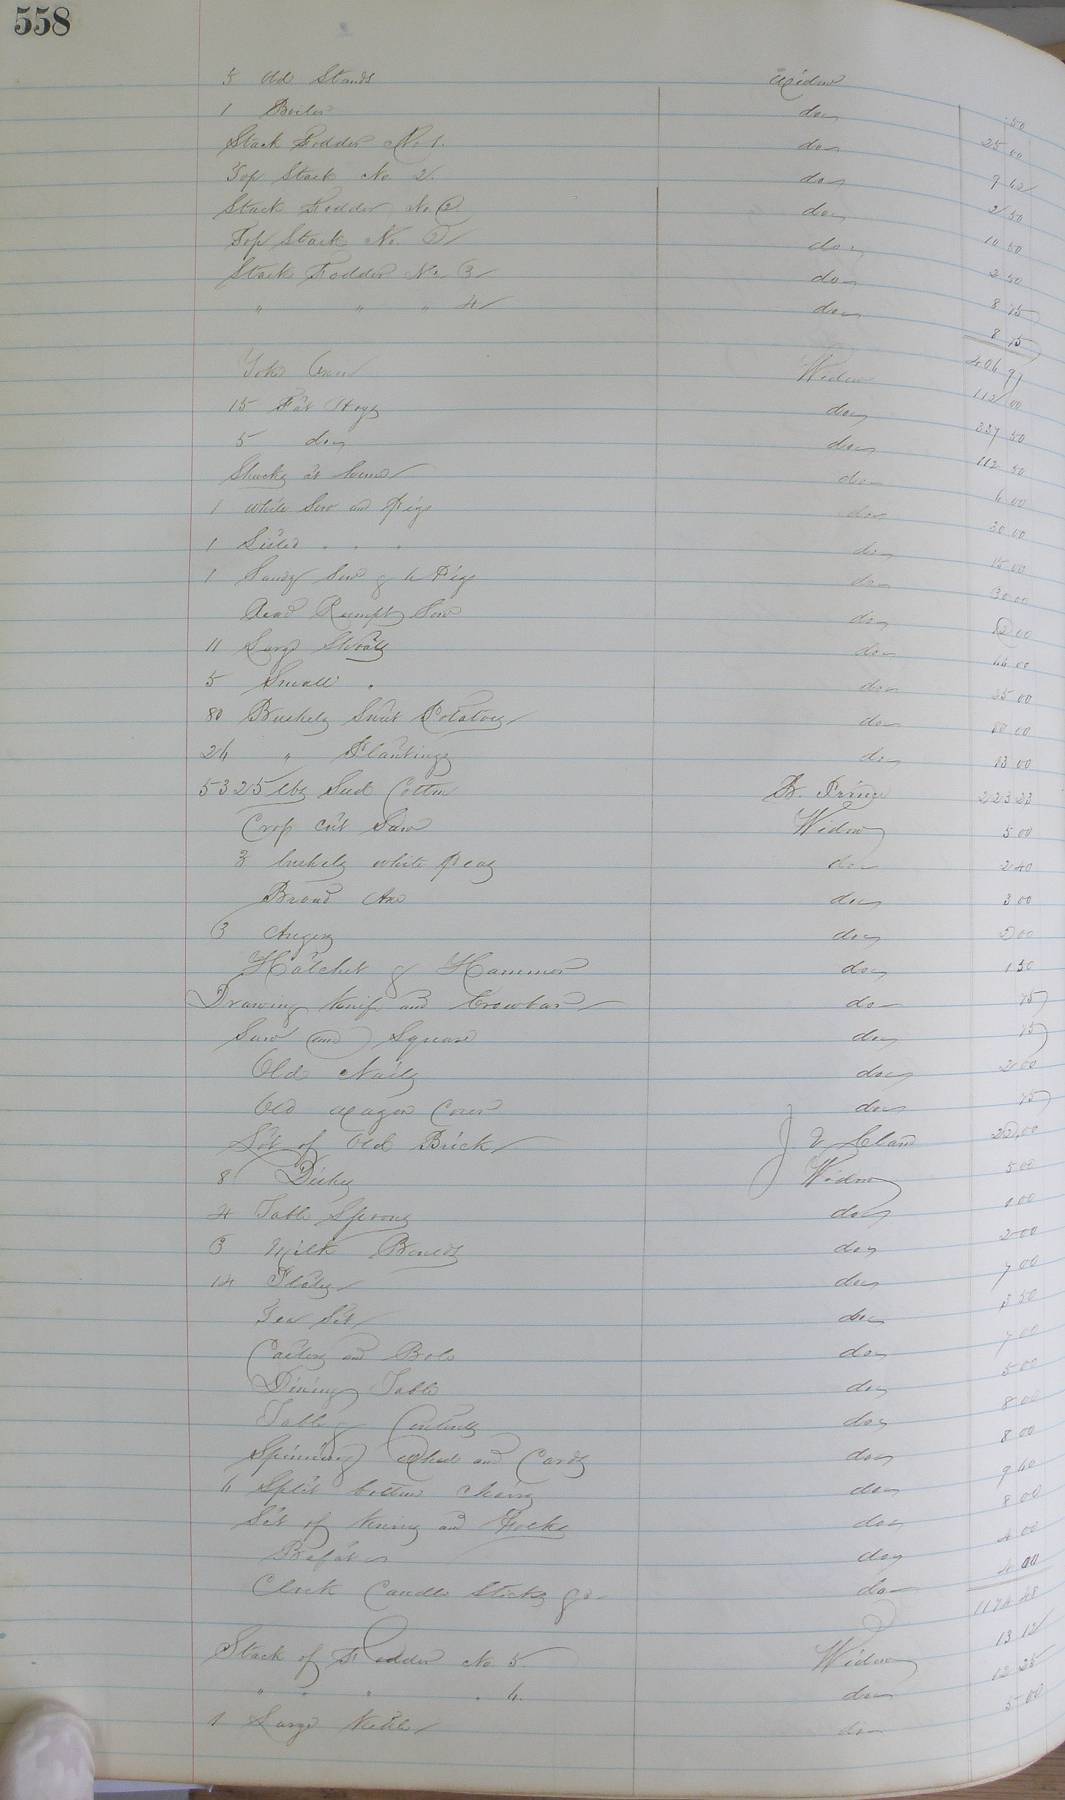 558
5 Old Stands Widow .50
1 Boiler do 25 00
Stack Fodder No 1. do 9 62
Top Stack No 2. do 2 50
Stack Fodder No 2 do 10 50
Top Stack No. 2 do 2 50
Stack Fodder No 3 do 8 75
" " " 4 do 8 75
406 91
Yoke Oxen Widow 112 00
15 Fat Hogs do 337 50
5 do do 112 50
Shucks at home do 6 00
1 white Sow and Pigs do 30 00
1 Listed . . . do 15 00
1 Sandy Sow & 6 Pigs do 30 00
Read Rumpt Sow do 12 00
11 Large Shoats do 66 00
5 Small . do 25 00
80 Bushels Sweet Potatoes do 80 00
26 " Plantings do 13 00
5325 lbs Seed Cotton 223 23
Crop cut Saw Widow 5 00
3 bushels white Peas do 2 40
Broad Axe do 3 00
3 Augers do 5 00
Hatchet & Hammer do 1 50
Drawing Knife and Crowbar do 75
Saw and Square do 75
Old Nails do 2 00
Old Wagon Cover do 75
Lot of Old Brick J 22.00
8 Dishes Widow 5 00
4 Table Spoons do
3 Milk do 2 00
14 Plates do 7 00
Tea Set do 3 50
and do 7 00
Dining Table do 5 00
Table & Contents do 8 00
Spinning Wheel and Cards do 8 00
6 Split bottom Chairs do 9 60
Set of Knives and Forks do 8 00
do 4 00
Clock Candle Sticks &c do 4 00
1174 48
Stack of Fodder No 5. Widow 13 12
" " " . 6. do 12 25
1 Large Kettle do 5 00